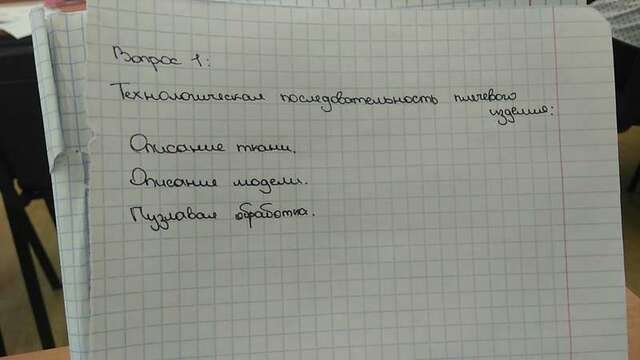 Вопрос 1:
Технологическая последовательность плечевого
изделия:
Описание ткани.
Описание модели.
Пузлавая обработка.